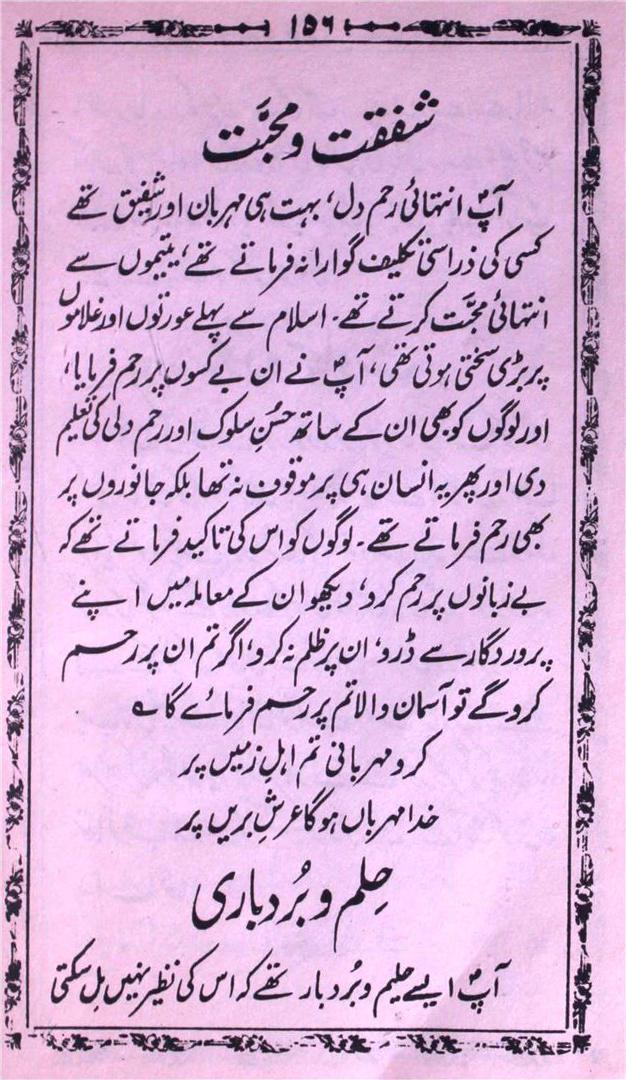 ۱۵۶
شفقت و محبّت
آپؐ انتہائی رحم دل، بہت ہی مہربان اور شفیق تھے
کسی کی ذرا سی تکلیف گوارا نہ فرماتے تھے، یتیموں سے
انتہائی محبّت کرتے تھے۔ اسلام سے پہلے عورتوں اور غلاموں
پر بڑی سختی ہوتی تھی، آپؐ نے ان بے کسوں پر رحم فرمایا،
اور لوگوں کو بھی ان کے ساتھ حُسنِ سلوک اور رحم دلی کی تعلیم
دی اور پھر یہ انسان ہی پر موقوف نہ تھا بلکہ جانوروں پر
بھی رحم فرماتے تھے۔ لوگوں کو اس کی تاکید فرماتے تھے کہ
بے زبانوں پر رحم کرو، دیکھو ان کے معاملہ میں اپنے
پروردگار سے ڈرو، ان پر ظلم نہ کرو، اگر تم ان پر رحم
کرو گے تو آسمان والا تم پر رحم فرمائے گا ؎
کرو مہربانی تم اہلِ زمیں پر
خدا مہرباں ہو گا عرشِ بریں پر
حِلم و بُردباری
آپؐ ایسے حلیم و بُردبار تھے کہ اس کی نظیر نہیں مِل سکتی